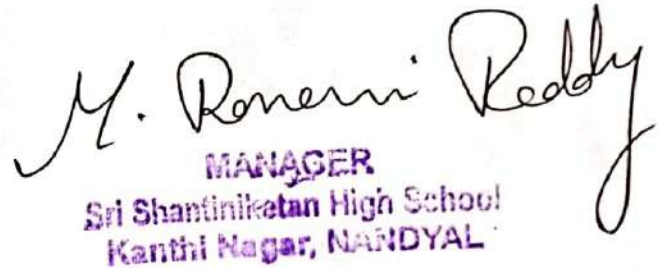 M. Reddy
MANAGER
Sri Shantiniketan High School
Kanthi Nagar, NANDYAL